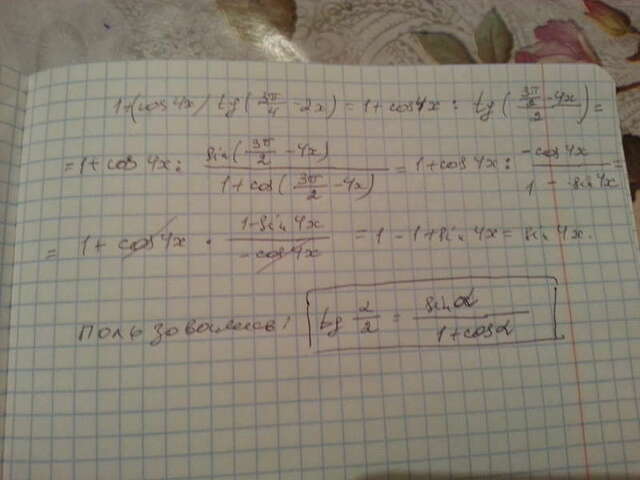 1+(cos4x / tg(3π/4 - 2x) = 1 + cos4x : tg((3π/2 - 4x)/2) =
= 1 + cos 4x : sin(3π/2 - 4x) / 1 + cos(3π/2 - 4x) = 1 + cos4x : -cos4x / 1 - sin4x =
= 1 + cos4x · 1 - sin4x / -cos4x = 1 - 1 + sin4x = sin 4x.
Пользовались! tg α/2 = sinα / 1+cosα